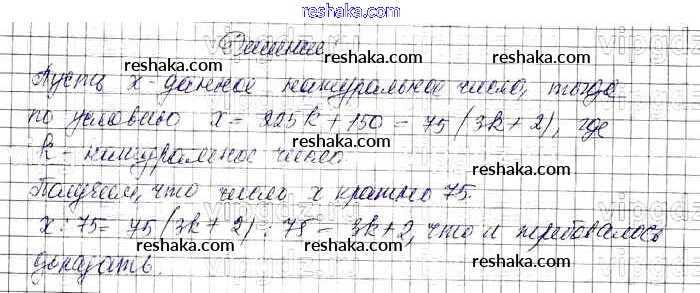 reshaka.com
Решение
Пусть x - данное натуральное число, тогда
по условию x = 225k + 150 = 75(3k + 2), где
k - натуральное число.
Получаем, что число x кратно 75.
x : 75 = 75(3k + 2) : 75 = 3k + 2, что и требовалось
доказать.
reshaka.com
reshaka.com
reshaka.com
reshaka.com
reshaka.com
reshaka.com
reshaka.com
reshaka.com
reshaka.com